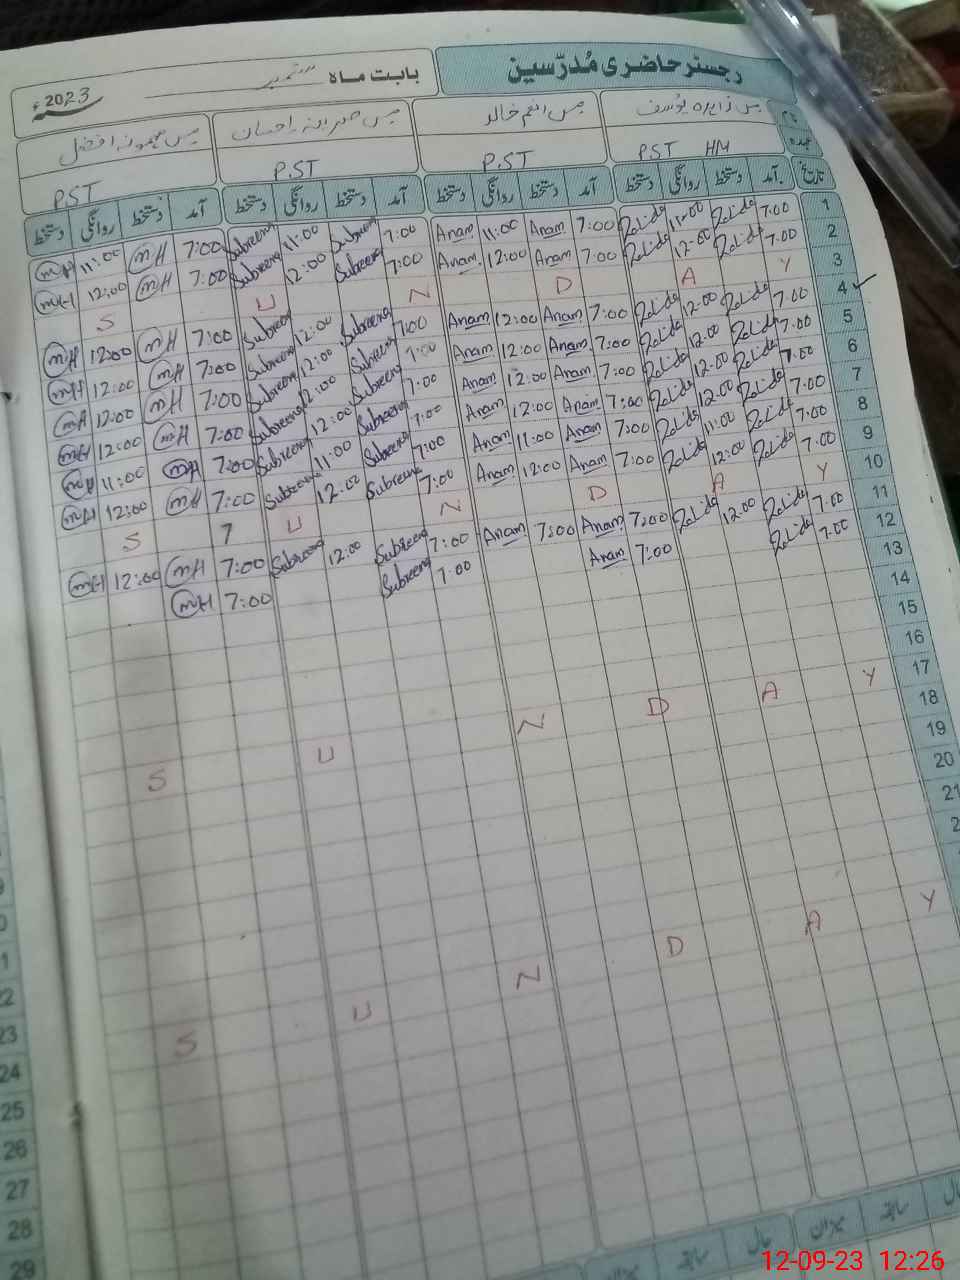 رجسٹر حاضری مُدرّسین
بابت ماہ ستمبر 2023ء
نام مس زاہدہ یوسف مس انعم خالد مس صبرینہ احسان مس میمونہ افضل
عہدہ PST HM P.ST P.ST P.ST
تاریخ آمد دستخط روانگی دستخط آمد دستخط روانگی دستخط آمد دستخط روانگی دستخط آمد دستخط روانگی دستخط
1 7:00 11:00 7:00 Anam 11:00 Anam 7:00 Subreena 11:00 Subreena 7:00 mH 11:00 mH
2 7:00 12:00 7:00 Anam 12:00 Anam 7:00 Subreena 12:00 Subreena 7:00 mH 12:00 mH
3 S U N D A Y
4 7:00 12:00 7:00 Anam 12:00 Anam 7:00 Subreena 12:00 Subreena 7:00 mH 12:00 mH
5 7:00 12:00 7:00 Anam 12:00 Anam 7:00 Subreena 12:00 Subreena 7:00 mH 12:00 mH
6 7:00 12:00 7:00 Anam 12:00 Anam 7:00 Subreena 12:00 Subreena 7:00 mH 12:00 mH
7 7:00 12:00 7:00 Anam 12:00 Anam 7:00 Subreena 12:00 Subreena 7:00 mH 12:00 mH
8 7:00 11:00 7:00 Anam 11:00 Anam 7:00 Subreena 11:00 Subreena 7:00 mH 11:00 mH
9 7:00 12:00 7:00 Anam 12:00 Anam 7:00 Subreena 12:00 Subreena 7:00 mH 12:00 mH
10 S U N D A Y
11 7:00 12:00 7:00 Anam 7:00 Anam 7:00 Subreena 12:00 Subreena 7:00 mH 12:00 mH
12 7:00 7:00 Anam 7:00 Subreena 7:00 mH
13
14
15
16
17 S U N D A Y
18
19
20
21
S U N D A Y
22
23
24
25
26
27
28
29
میزان سابقہ حال
12-09-23 12:26